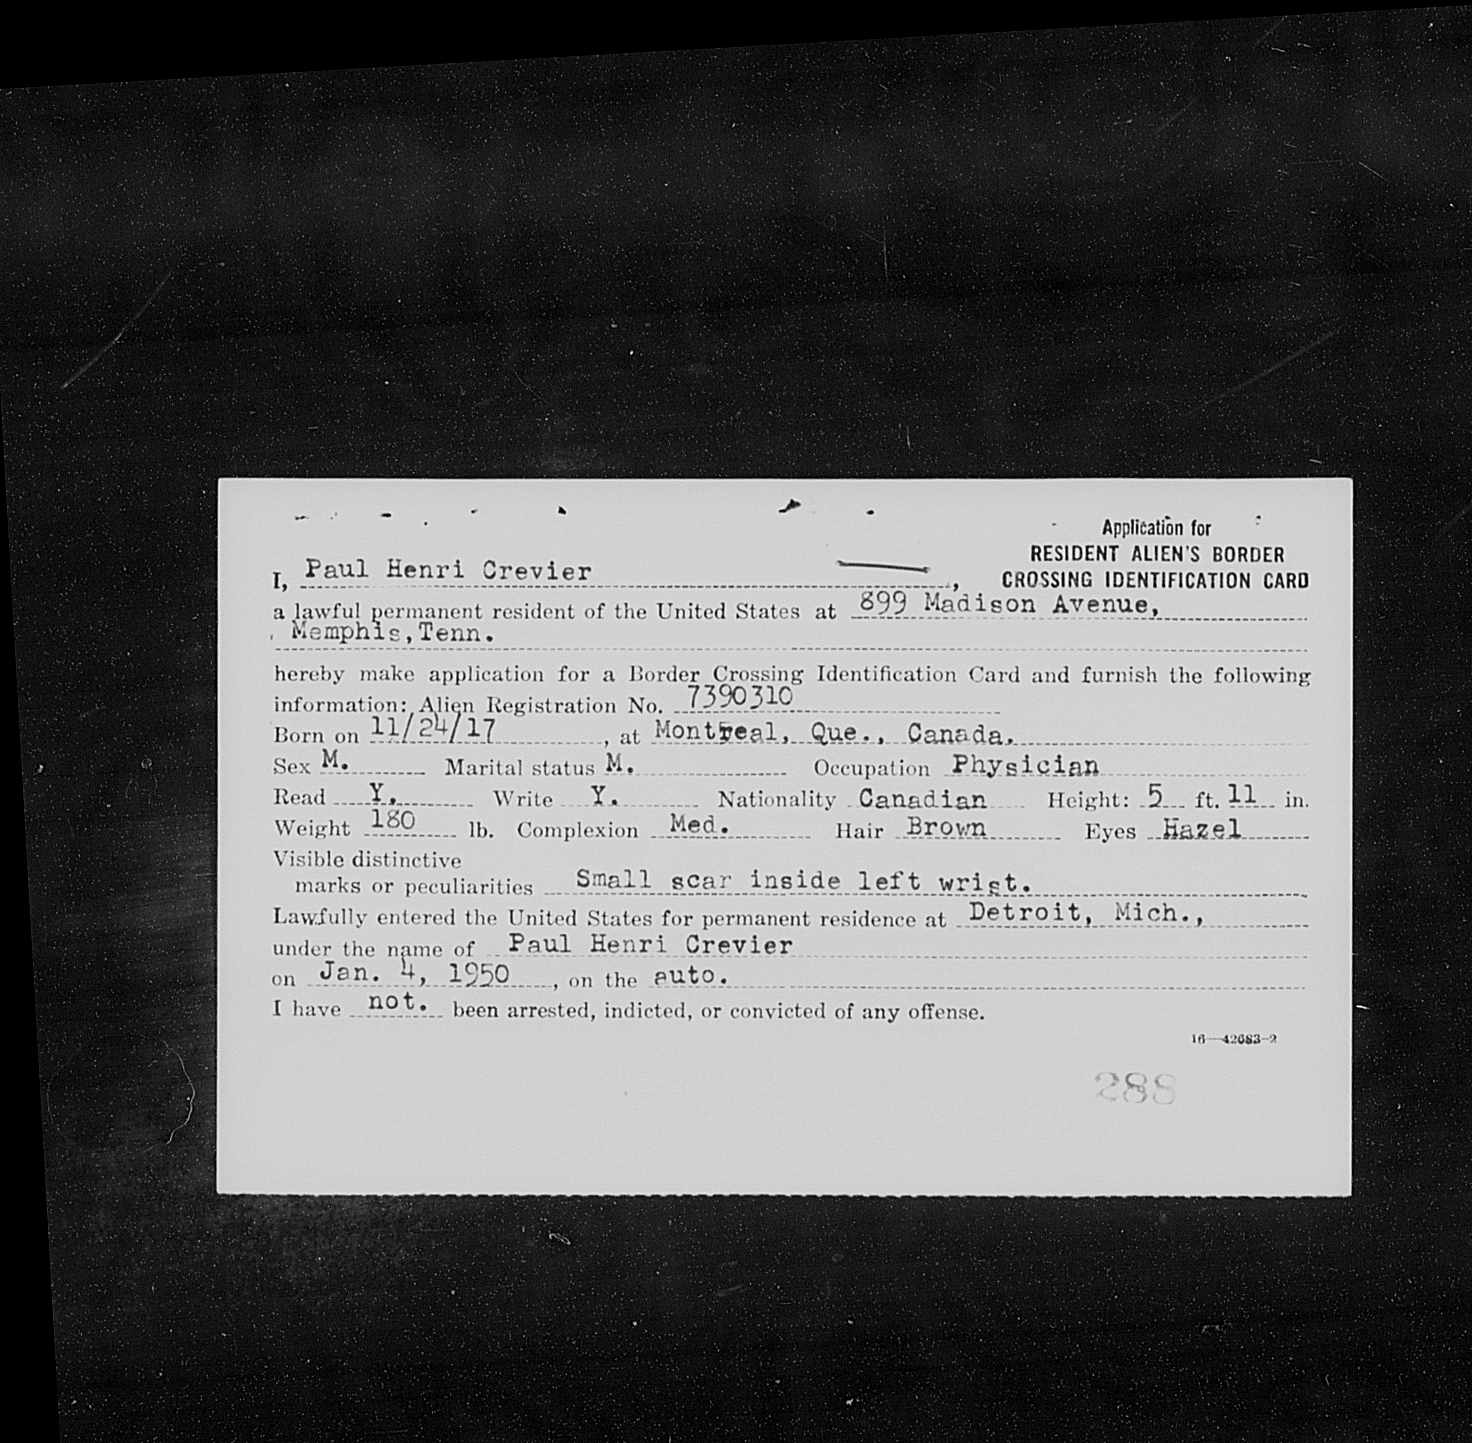 Application for
RESIDENT ALIEN'S BORDER
CROSSING IDENTIFICATION CARD
I, Paul Henri Crevier ,
a lawful permanent resident of the United States at 899 Madison Avenue,
Memphis, Tenn.
hereby make application for a Border Crossing Identification Card and furnish the following
information: Alien Registration No. 7390310
Born on 11/24/17 , at Montreal, Que., Canada.
Sex M. Marital status M. Occupation Physician
Read Y. Write Y. Nationality Canadian Height: 5 ft. 11 in.
Weight 180 lb. Complexion Med. Hair Brown Eyes Hazel
Visible distinctive
marks or peculiarities Small scar inside left wrist.
Lawfully entered the United States for permanent residence at Detroit, Mich.,
under the name of Paul Henri Crevier
on Jan. 4, 1950 , on the auto.
I have not. been arrested, indicted, or convicted of any offense.
16—42683-2
288